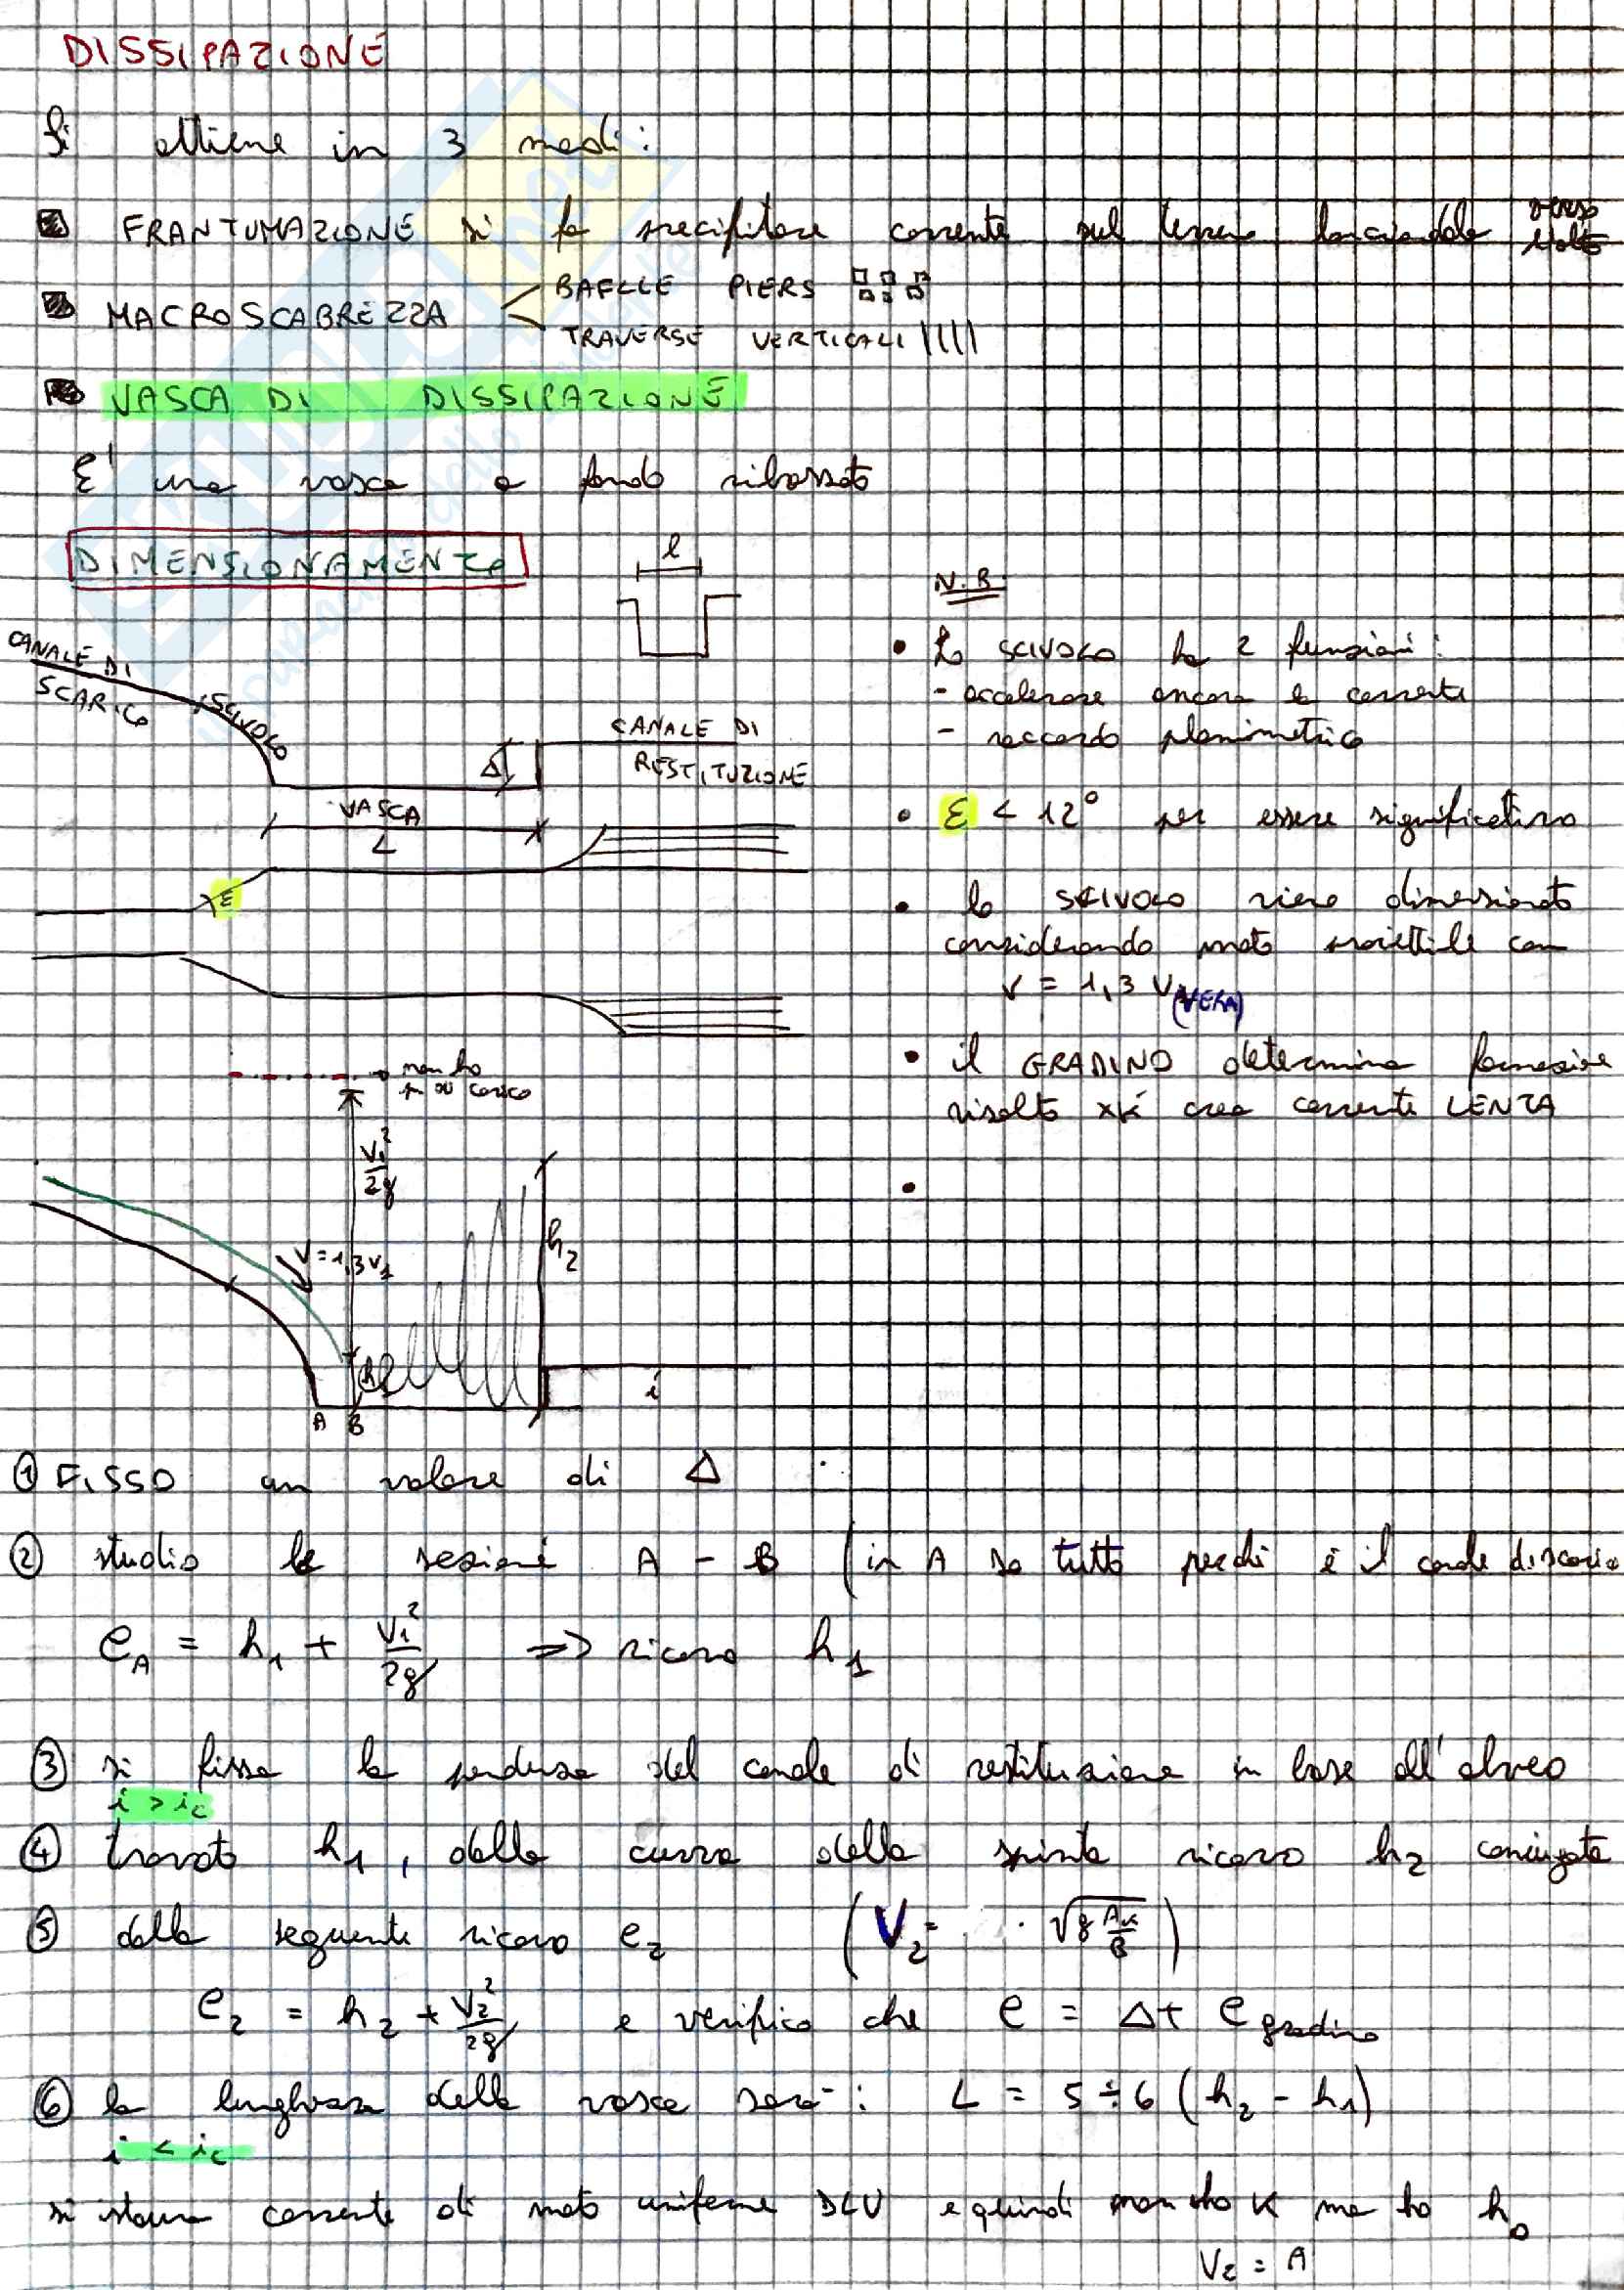 DISSIPAZIONE
Si ottiene in 3 modi:
FRANTUMAZIONE si fa precipitare corrente sul terreno lanciandola verso l'alto
MACROSCABREZZA
BAFFLE PIERS
TRAVERSE VERTICALI
VASCA DI DISSIPAZIONE
E' una vasca a fondo ribassato
DIMENSIONAMENTO
l
CANALE DI
SCARICO
SCIVOLO
Δ
CANALE DI
RESTITUZIONE
VASCA
L
ε
N.B
• Lo SCIVOLO ha 2 funzioni:
- accelerare ancora la corrente
- raccordo planimetrico
• ε < 12° per essere significativo
• lo SCIVOLO viene dimensionato
considerando moto proiettile con
v = 1,3 V (VERA)
• il GRADINO determina formazione
risalto xk' crea corrente LENTA
•
non ho
carico
V₁²/2g
V=1,3V₁
h₂
A B
i
① FISSO un valore di Δ
② studio le sezioni A - B (in A so tutto perché è il canale di scarico
e_A = h₁ + V₁²/2g => ricavo h₁
③ si fissa la pendenza del canale di restituzione in base all'alveo
i > i_c
④ trovato h₁, dalla curva della spinta ricavo h₂ coniugata
⑤ dalla seguente ricavo e₂ (V₂ = · √g A_k/B)
e₂ = h₂ + V₂²/2g e verifico che e = Δ + e_gradino
⑥ la lunghezza della vasca sarà: L = 5÷6 (h₂ - h₁)
i < i_c
si instaura corrente di moto uniforme DLV e quindi non ho K ma ho h₀
V₂ = A